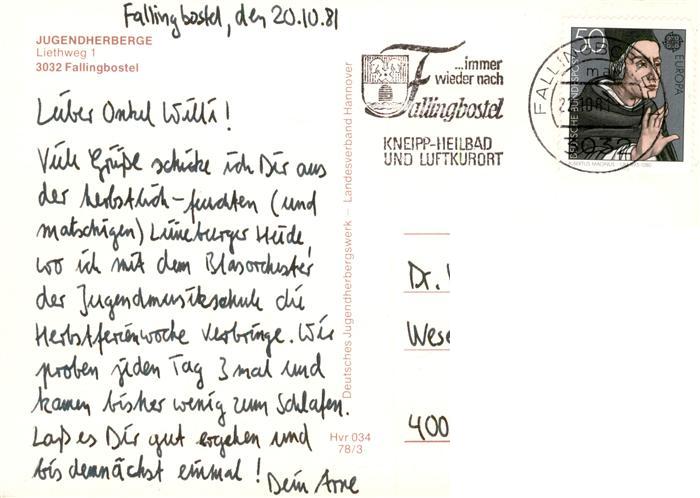 Fallingbostel, den 20.10.81
JUGENDHERBERGE
Liethweg 1
3032 Fallingbostel
Lieber Onkel Willi!
Viele Grüße schicke ich Dir aus
der herbstlich-feuchten (und
matschigen) Lüneburger Heide,
wo ich mit dem Blasorchester
der Jugendmusikschule die
Herbstferienwoche verbringe. Wir
proben jeden Tag 3 mal und
kamen bisher wenig zum Schlafen.
Laß es Dir gut ergehen und
bis demnächst einmal! Dein Arne
Deutsches Jugendherbergswerk – Landesverband Hannover
Hvr 034
78/3
...immer
wieder nach
Fallingbostel
KNEIPP-HEILBAD
UND LUFTKURORT
50
EUROPA
DEUTSCHE BUNDESPOST
ALBERTUS MAGNUS
FALLINGBOS
3032
Dr.
Wese
400